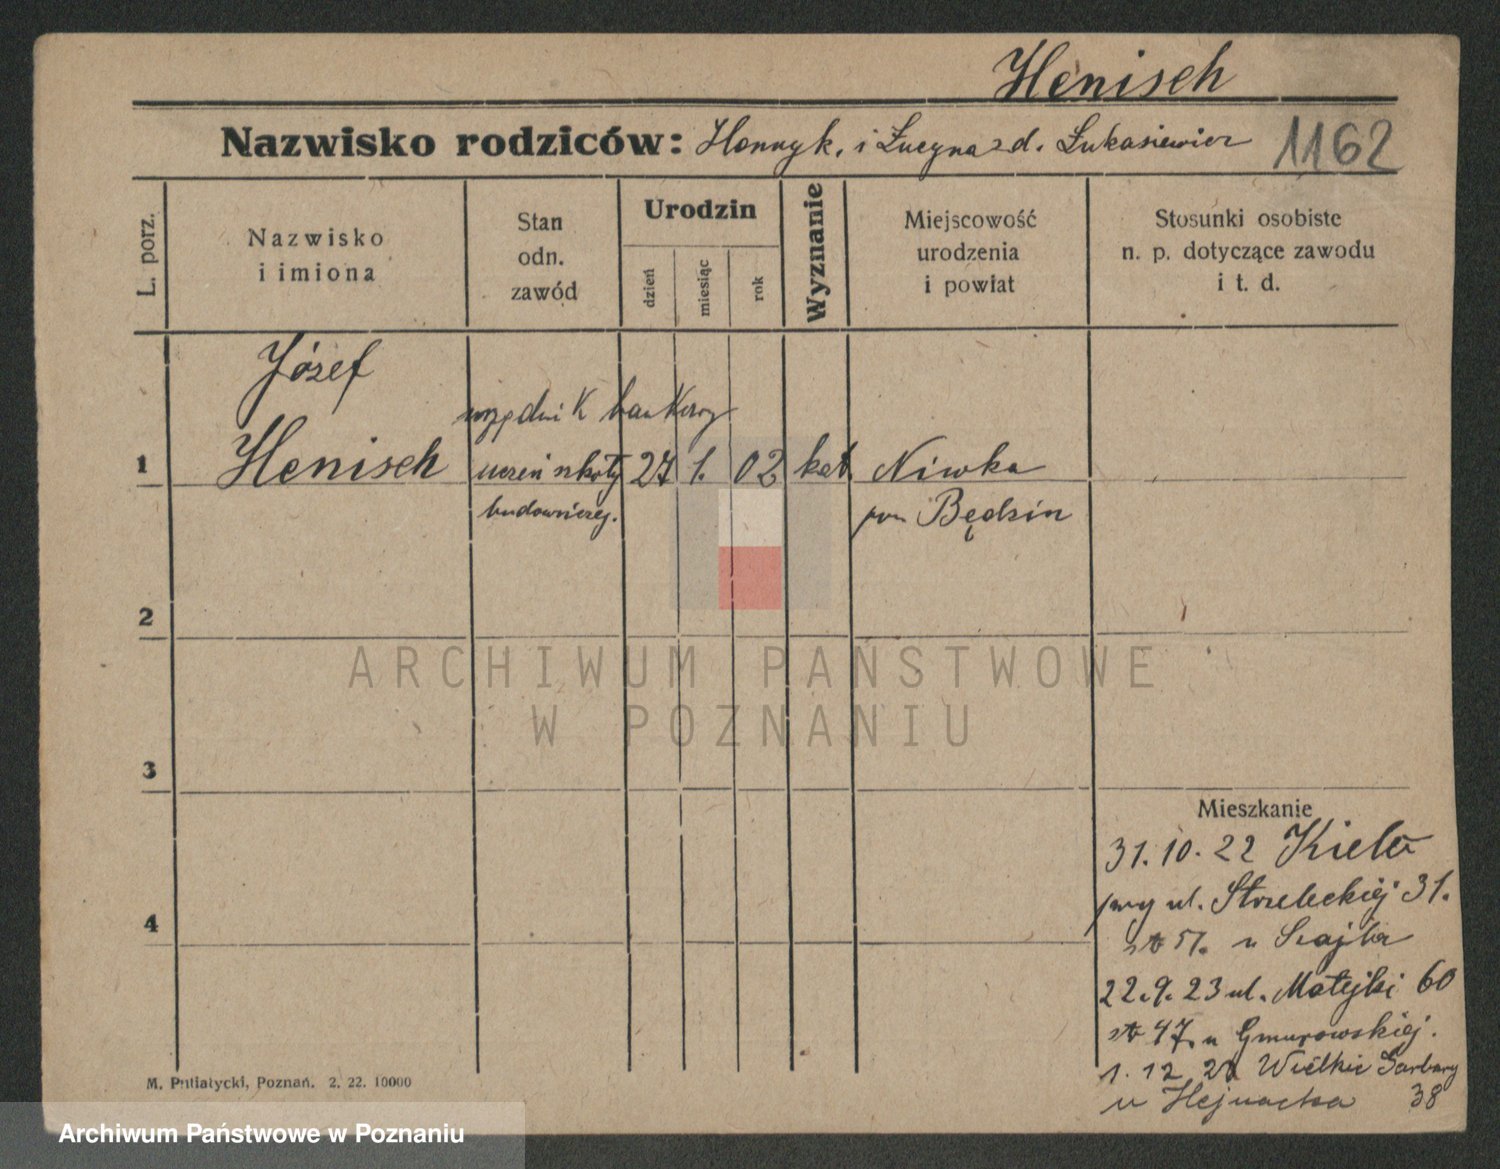 Henisch
Nazwisko rodziców: Henryk. i Łucyna z d. Łukasiewicz 1162
L. porz.
Nazwisko
i imiona
Stan
odn.
zawód
Urodzin
dzień
miesiąc
rok
Wyznanie
Miejscowość
urodzenia
i powiat
Stosunki osobiste
n. p. dotyczące zawodu
i t. d.
Józef
urzędnik bankowy
1 Henisch uczeń szkoły 27 1. 02 kat Niwka
budowniczej. pow Będzin
2
ARCHIWUM PAŃSTWOWE
W POZNANIU
3
Mieszkanie
31.10.22
przy ul. Strzeleckiej 31.
u Szajba
4
22.9.23 ul. Matejki 60
47. u Gmurowskiej.
1.12 Wielkie Garbary
u 38
M. Putiatycki, Poznań. 2. 22. 10000
Archiwum Państwowe w Poznaniu